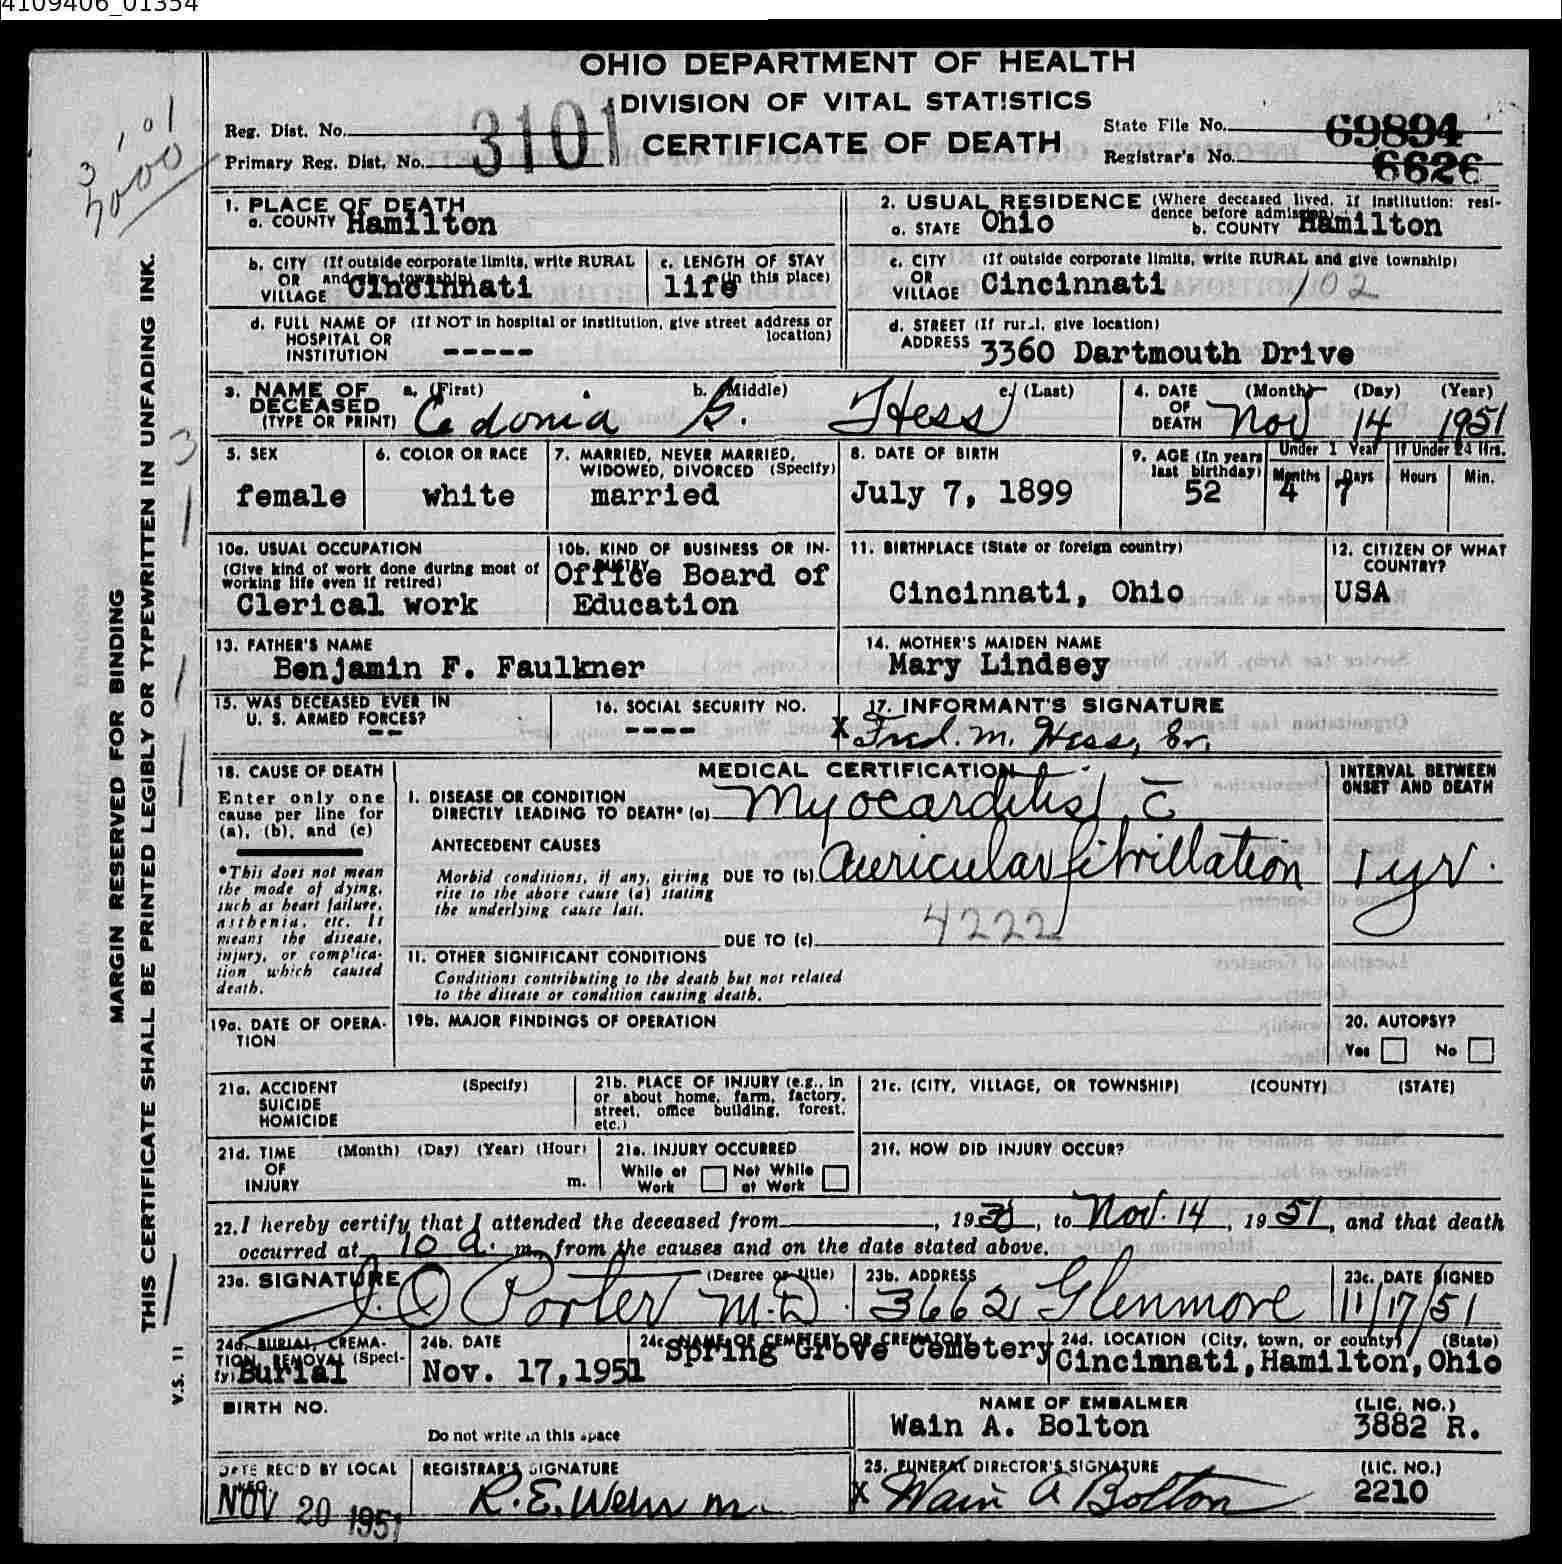 4109406_01354
OHIO DEPARTMENT OF HEALTH
DIVISION OF VITAL STATISTICS
CERTIFICATE OF DEATH
Reg. Dist. No.
Primary Reg. Dist. No. 3101
State File No. 69894
Registrar's No. 6626
3 1 01
MARGIN RESERVED FOR BINDING
THIS CERTIFICATE SHALL BE PRINTED LEGIBLY OR TYPEWRITTEN IN UNFADING INK.
V.S. 11
1. PLACE OF DEATH
a. COUNTY Hamilton
2. USUAL RESIDENCE (Where deceased lived. If institution: resi-
dence before admission)
a. STATE Ohio b. COUNTY Hamilton
b. CITY (If outside corporate limits, write RURAL
OR and give township)
VILLAGE Cincinnati
c. LENGTH OF STAY
(in this place)
life
c. CITY (If outside corporate limits, write RURAL and give township)
OR
VILLAGE Cincinnati 102
d. FULL NAME OF (If NOT in hospital or institution, give street address or
HOSPITAL OR location)
INSTITUTION -----
d. STREET (If rural, give location)
ADDRESS 3360 Dartmouth Drive
3. NAME OF a. (First) b. (Middle) c. (Last)
DECEASED
(TYPE OR PRINT) Cedonia G. Hess
4. DATE (Month) (Day) (Year)
OF
DEATH Nov 14 1951
5. SEX
female
6. COLOR OR RACE
white
7. MARRIED, NEVER MARRIED,
WIDOWED, DIVORCED (Specify)
married
8. DATE OF BIRTH
July 7, 1899
9. AGE (In years
last birthday)
52
Under 1 Year
Months Days
4 7
If Under 24 Hrs.
Hours Min.
10a. USUAL OCCUPATION
(Give kind of work done during most of
working life even if retired)
Clerical work
10b. KIND OF BUSINESS OR IN-
DUSTRY
Office Board of
Education
11. BIRTHPLACE (State or foreign country)
Cincinnati, Ohio
12. CITIZEN OF WHAT
COUNTRY?
USA
13. FATHER'S NAME
Benjamin F. Faulkner
14. MOTHER'S MAIDEN NAME
Mary Lindsey
15. WAS DECEASED EVER IN
U. S. ARMED FORCES?
--
16. SOCIAL SECURITY NO.
----
17. INFORMANT'S SIGNATURE
X Fred. M. Hess, Sr.
18. CAUSE OF DEATH
Enter only one
cause per line for
(a), (b), and (c)
*This does not mean
the mode of dying,
such as heart failure,
asthenia, etc. It
means the disease,
injury, or complica-
tion which caused
death.
MEDICAL CERTIFICATION
I. DISEASE OR CONDITION
DIRECTLY LEADING TO DEATH* (a) Myocarditis c̄
ANTECEDENT CAUSES
Morbid conditions, if any, giving DUE TO (b) auricular fibrillation
rise to the above cause (a) stating
the underlying cause last.
4222
DUE TO (c)
II. OTHER SIGNIFICANT CONDITIONS
Conditions contributing to the death but not related
to the disease or condition causing death.
INTERVAL BETWEEN
ONSET AND DEATH
1 yr.
19a. DATE OF OPERA-
TION
19b. MAJOR FINDINGS OF OPERATION
20. AUTOPSY?
Yes No
21a. ACCIDENT (Specify)
SUICIDE
HOMICIDE
21b. PLACE OF INJURY (e.g., in
or about home, farm, factory,
street, office building, forest,
etc.)
21c. (CITY, VILLAGE, OR TOWNSHIP) (COUNTY) (STATE)
21d. TIME (Month) (Day) (Year) (Hour)
OF
INJURY m.
21e. INJURY OCCURRED
While at Not While
Work at Work
21f. HOW DID INJURY OCCUR?
22. I hereby certify that I attended the deceased from , 19 , to Nov. 14, 1951, and that death
occurred at 10 a. m., from the causes and on the date stated above.
23a. SIGNATURE (Degree or title)
J. O Porter M.D.
23b. ADDRESS
3662 Glenmore
23c. DATE SIGNED
11/17/51
24a. BURIAL, CREMA-
TION, REMOVAL (Speci-
fy) Burial
24b. DATE
Nov. 17,1951
24c. NAME OF CEMETERY OR CREMATORY
Spring Grove Cemetery
24d. LOCATION (City, town, or county) (State)
Cincinnati,Hamilton,Ohio
BIRTH NO.
Do not write in this space
NAME OF EMBALMER
Wain A. Bolton
(LIC. NO.)
3882 R.
DATE REC'D BY LOCAL
REG.
NOV 20 1951
REGISTRAR'S SIGNATURE
R. E. Wehr m.
25. FUNERAL DIRECTOR'S SIGNATURE
X Wain A Bolton
(LIC. NO.)
2210